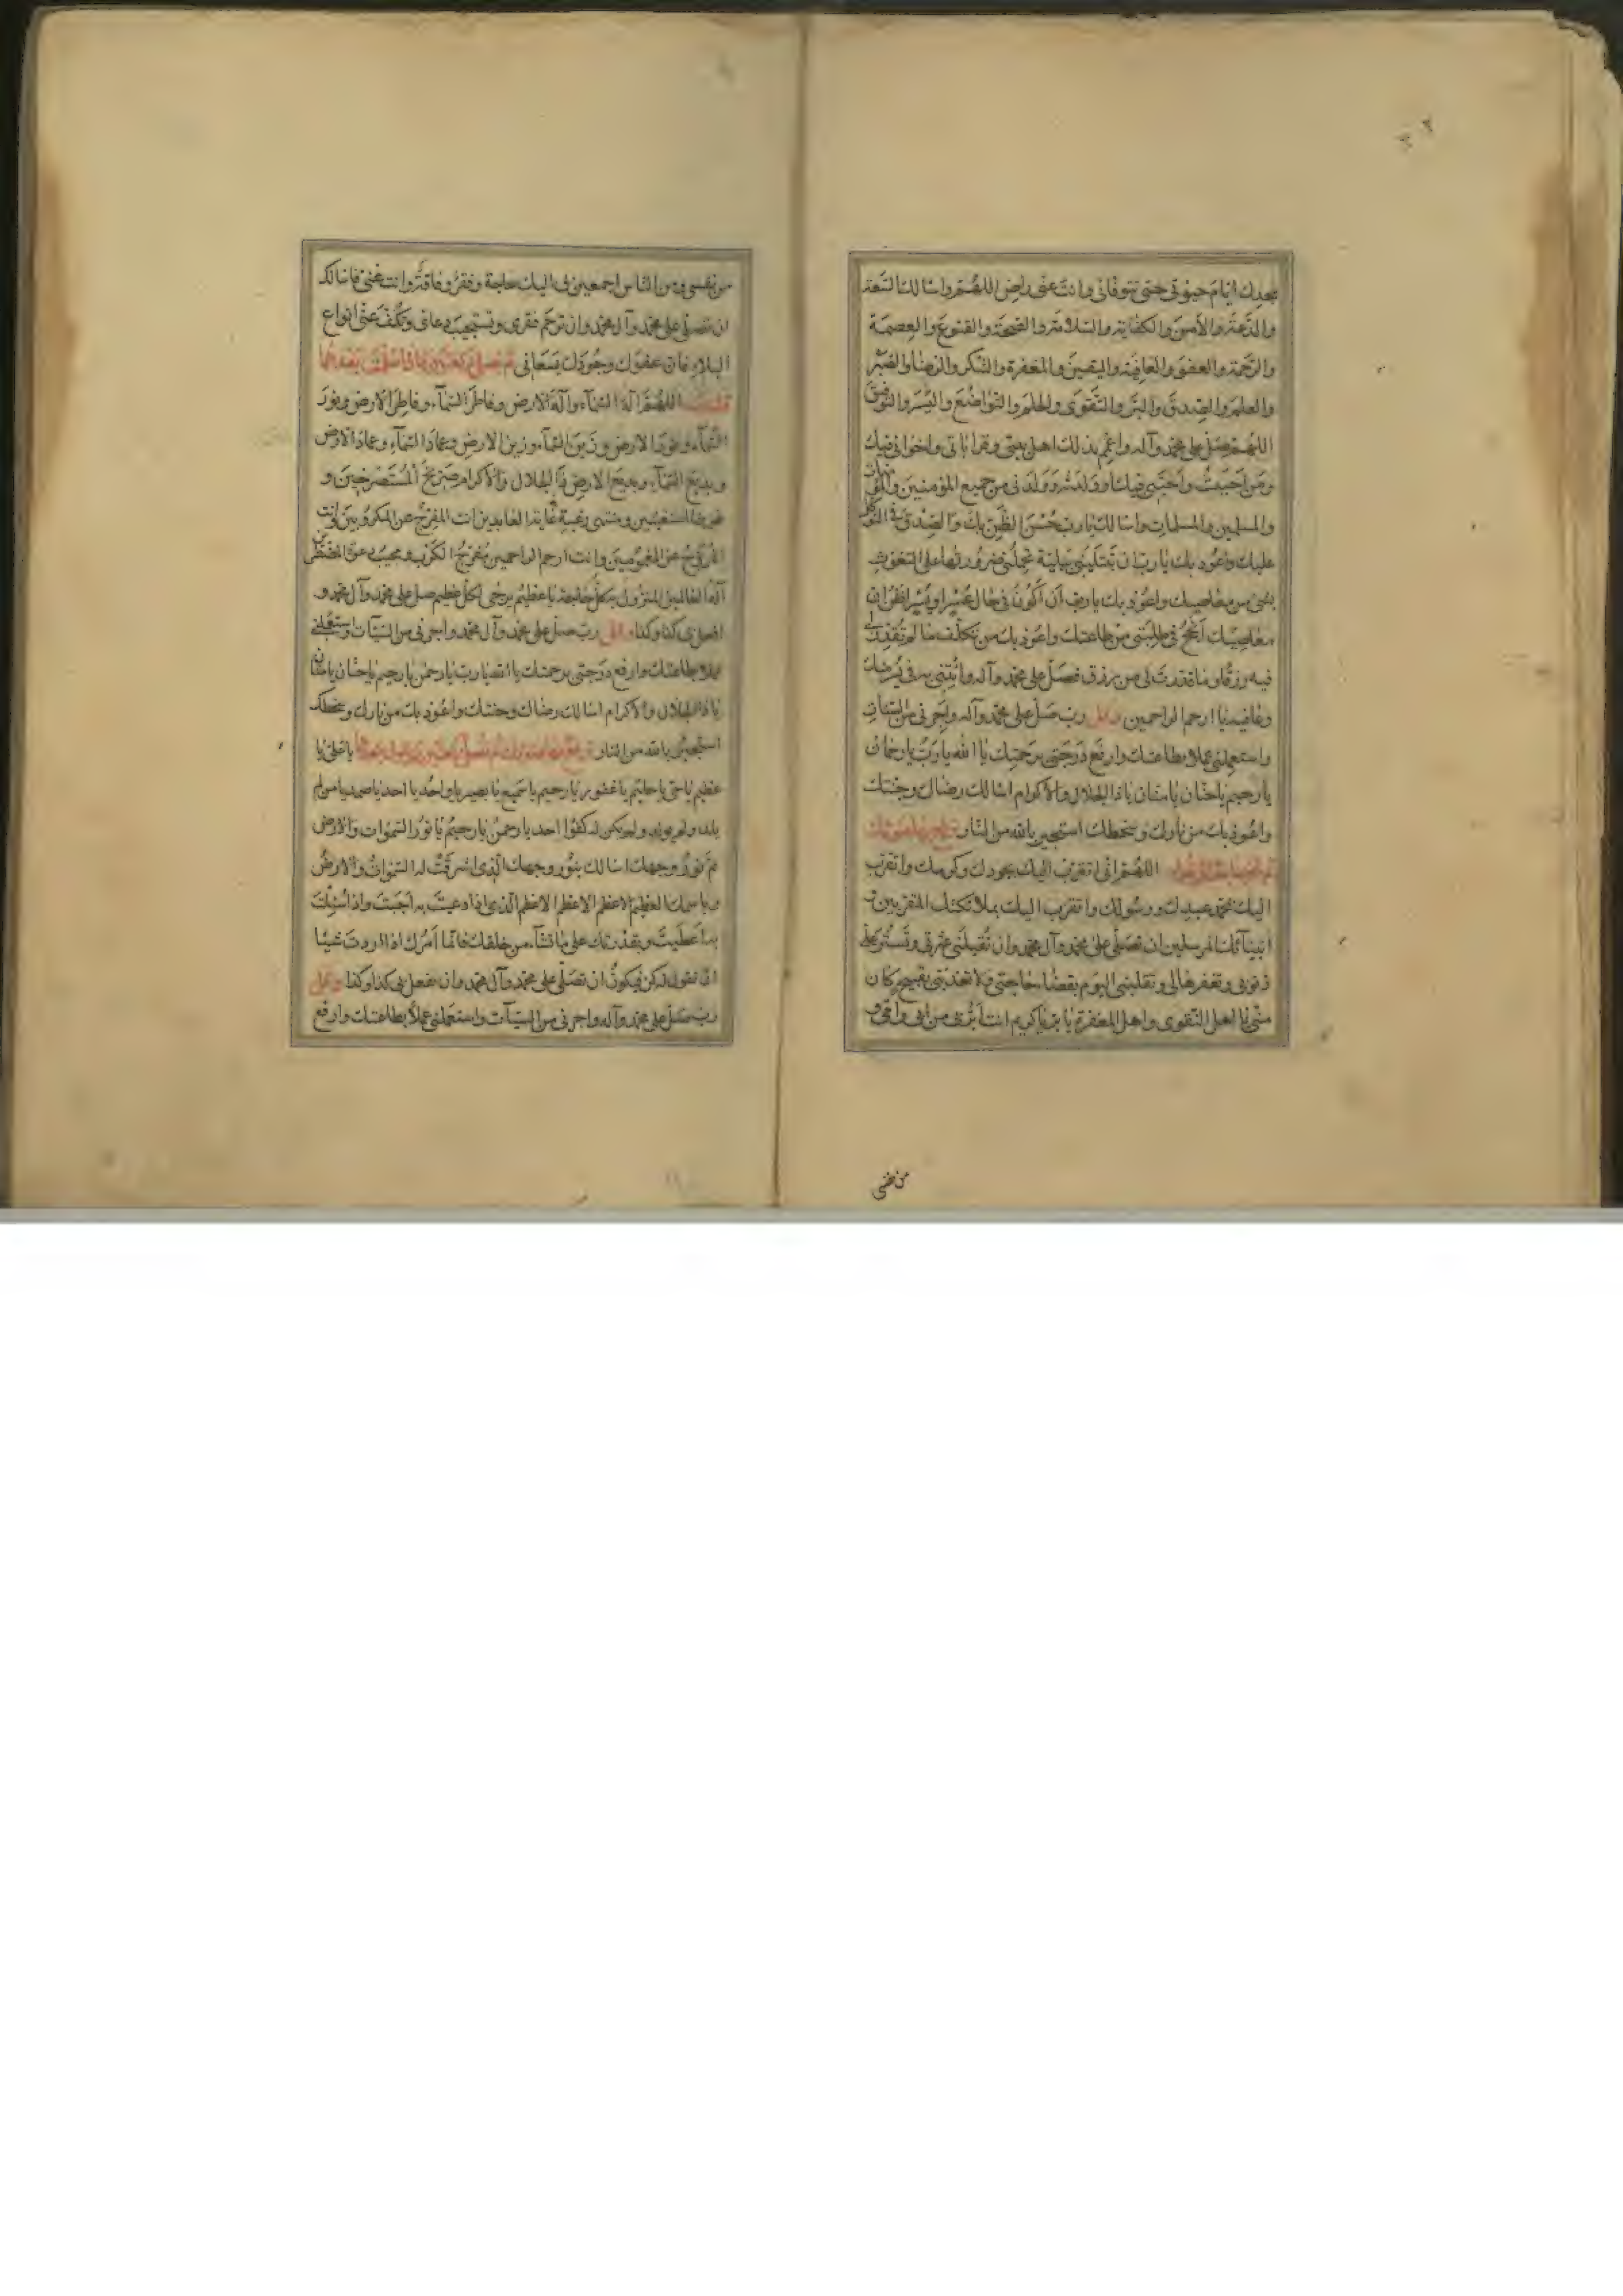 بجدك ايام حيوتى حتى تتوفانى وانت عنى راض اللهم واسالك السعة
والدعة والأمن والكفاية والسلامة والصحة والقنوع والعصمة
والرحمة والعفو والعافية واليقين والمغفرة والشكر والرضا والصبر
والعلم والصدق والبر والتقوى والحلم والتواضع واليسر والتوفيق
اللهم صل على محمد وآله واعمم بذلك اهل بيتى وقراباتى واخوانى فيك
ومن احببت واحبنى فيك او ولدته وولدنى من جميع المؤمنين والمؤمنات
والمسلمين والمسلمات واسالك يا رب حسن الظن بك والصدق فى التوكل
عليك واعوذ بك يا رب ان تبتلينى ببلية تحملنى ضرورتها على التغوث
بشئ من معاصيك واعوذ بك يا رب ان أكون فى حال عسر او يسر اظن ان
معاصيك انجح فى طلبتى من طاعتك واعوذ بك من تكلف ما لم تقدر لى
فيه رزقا وما قدرت لى من رزق فصل على محمد وآله وآتنى به فى يسر منك
وعافية يا ارحم الراحمين وقل رب صل على محمد وآله واجرنى من السيئات
واستعملنى عملا بطاعتك وارفع درجتى برحمتك يا الله يا رب يا رحمان
يا رحيم يا حنان يا منان يا ذا الجلال والاكرام اسالك رضاك وجنتك
واعوذ بك من نارك وسخطك استجير بالله من النار ترفع بها صوتك
ثم تخر ساجدا وتقول اللهم انى اتقرب اليك بجودك وكرمك واتقرب
اليك بمحمد عبدك ورسولك واتقرب اليك بملائكتك المقربين و
انبيائك المرسلين ان تصلى على محمد وآل محمد وان تقيلنى عثرتى وتستر على
ذنوبى وتغفرها لى وتقلبنى اليوم بقضاء حاجتى ولا تعذبنى بقبيح كان
منى يا اهل التقوى واهل المغفرة يا بر يا كريم انت ابر بى من ابى وامى و
من نفسى
من نفسى ومن الناس اجمعين بى اليك حاجة وفقر وفاقة وانت غنى فاسالك
ان تصلى على محمد وآل محمد وان ترحم فقرى وتستجيب دعائى وتكف عنى انواع
البلاء فان عفوك وجودك يسعانى ثم تصلى ركعتين فاذا سلمت بعدهما
قلت اللهم اله السماء واله الارض وفاطر السماء وفاطر الارض ونور
السماء ونور الارض وزين السماء وزين الارض وعماد السماء وعماد الارض
وبديع السماء وبديع الارض ذا الجلال والاكرام صريخ المستصرخين و
غوث المستغيثين ومنتهى رغبة العابدين انت المفرج عن المكروبين وانت
المروح عن المغمومين وانت ارحم الراحمين مفرج الكرب ومجيب دعوة المضطرين
اله العالمين المنزول به كل حاجة يا عظيم يرجى لكل عظيم صل على محمد وآل محمد و
افعل بى كذا وكذا وقل رب صل على محمد وآل محمد واجرنى من السيئات واستعملنى
عملا بطاعتك وارفع درجتى برحمتك يا الله يا رب يا رحمن يا رحيم يا حنان يا منان
يا ذا الجلال والاكرام اسالك رضاك وجنتك واعوذ بك من نارك وسخطك
استجير بالله من النار ترفع بها صوتك ثم تصلى ركعتين وتقول بعدهما يا على يا
عظيم يا حى يا حليم يا غفور يا رحيم يا سميع يا بصير يا واحد يا احد يا صمد يا من لم
يلد ولم يولد ولم يكن له كفوا احد يا رحمن يا رحيم يا نور السموات والارض
تم نور وجهك اسالك بنور وجهك الذى اشرقت له السموات والارض
وباسمك العظيم الاعظم الاعظم الاعظم الذى اذا دعيت به اجبت واذا سئلت
به اعطيت وبقدرتك على ما تشاء من خلقك فانما امرك اذا اردت شيئا
ان تقول له كن فيكون ان تصلى على محمد وآل محمد وان تفعل بى كذا وكذا وقل
رب صل على محمد وآله واجرنى من السيئات واستعملنى عملا بطاعتك وارفع